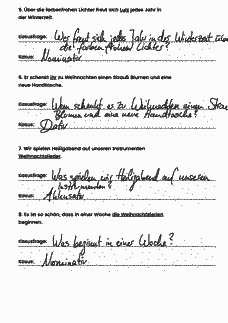 5. Über die farbenfrohen Lichter freut sich Lutz jedes Jahr in
der Winterzeit.
Kasusfrage: Wer freut sich jedes Jahr in der Winterzeit über
die farbenfrohen Lichter?
Kasus: Nominativ
6. Er schenkt ihr zu Weihnachten einen Strauß Blumen und eine
neue Handtasche.
Kasusfrage: Wem schenkt er zu Weihnachten einen
Blumen und eine neue Handtasche?
Kasus: Dativ
7. Wir spielen Heiligabend auf unseren Instrumenten
Weihnachtslieder.
Kasusfrage: Was spielen wir Heiligabend auf unseren
Instrumenten?
Kasus: Akkusativ
8. Es ist so schön, dass in einer Woche die Weihnachtsferien
beginnen.
Kasusfrage: Was beginnt in einer Woche?
Kasus: Nominativ